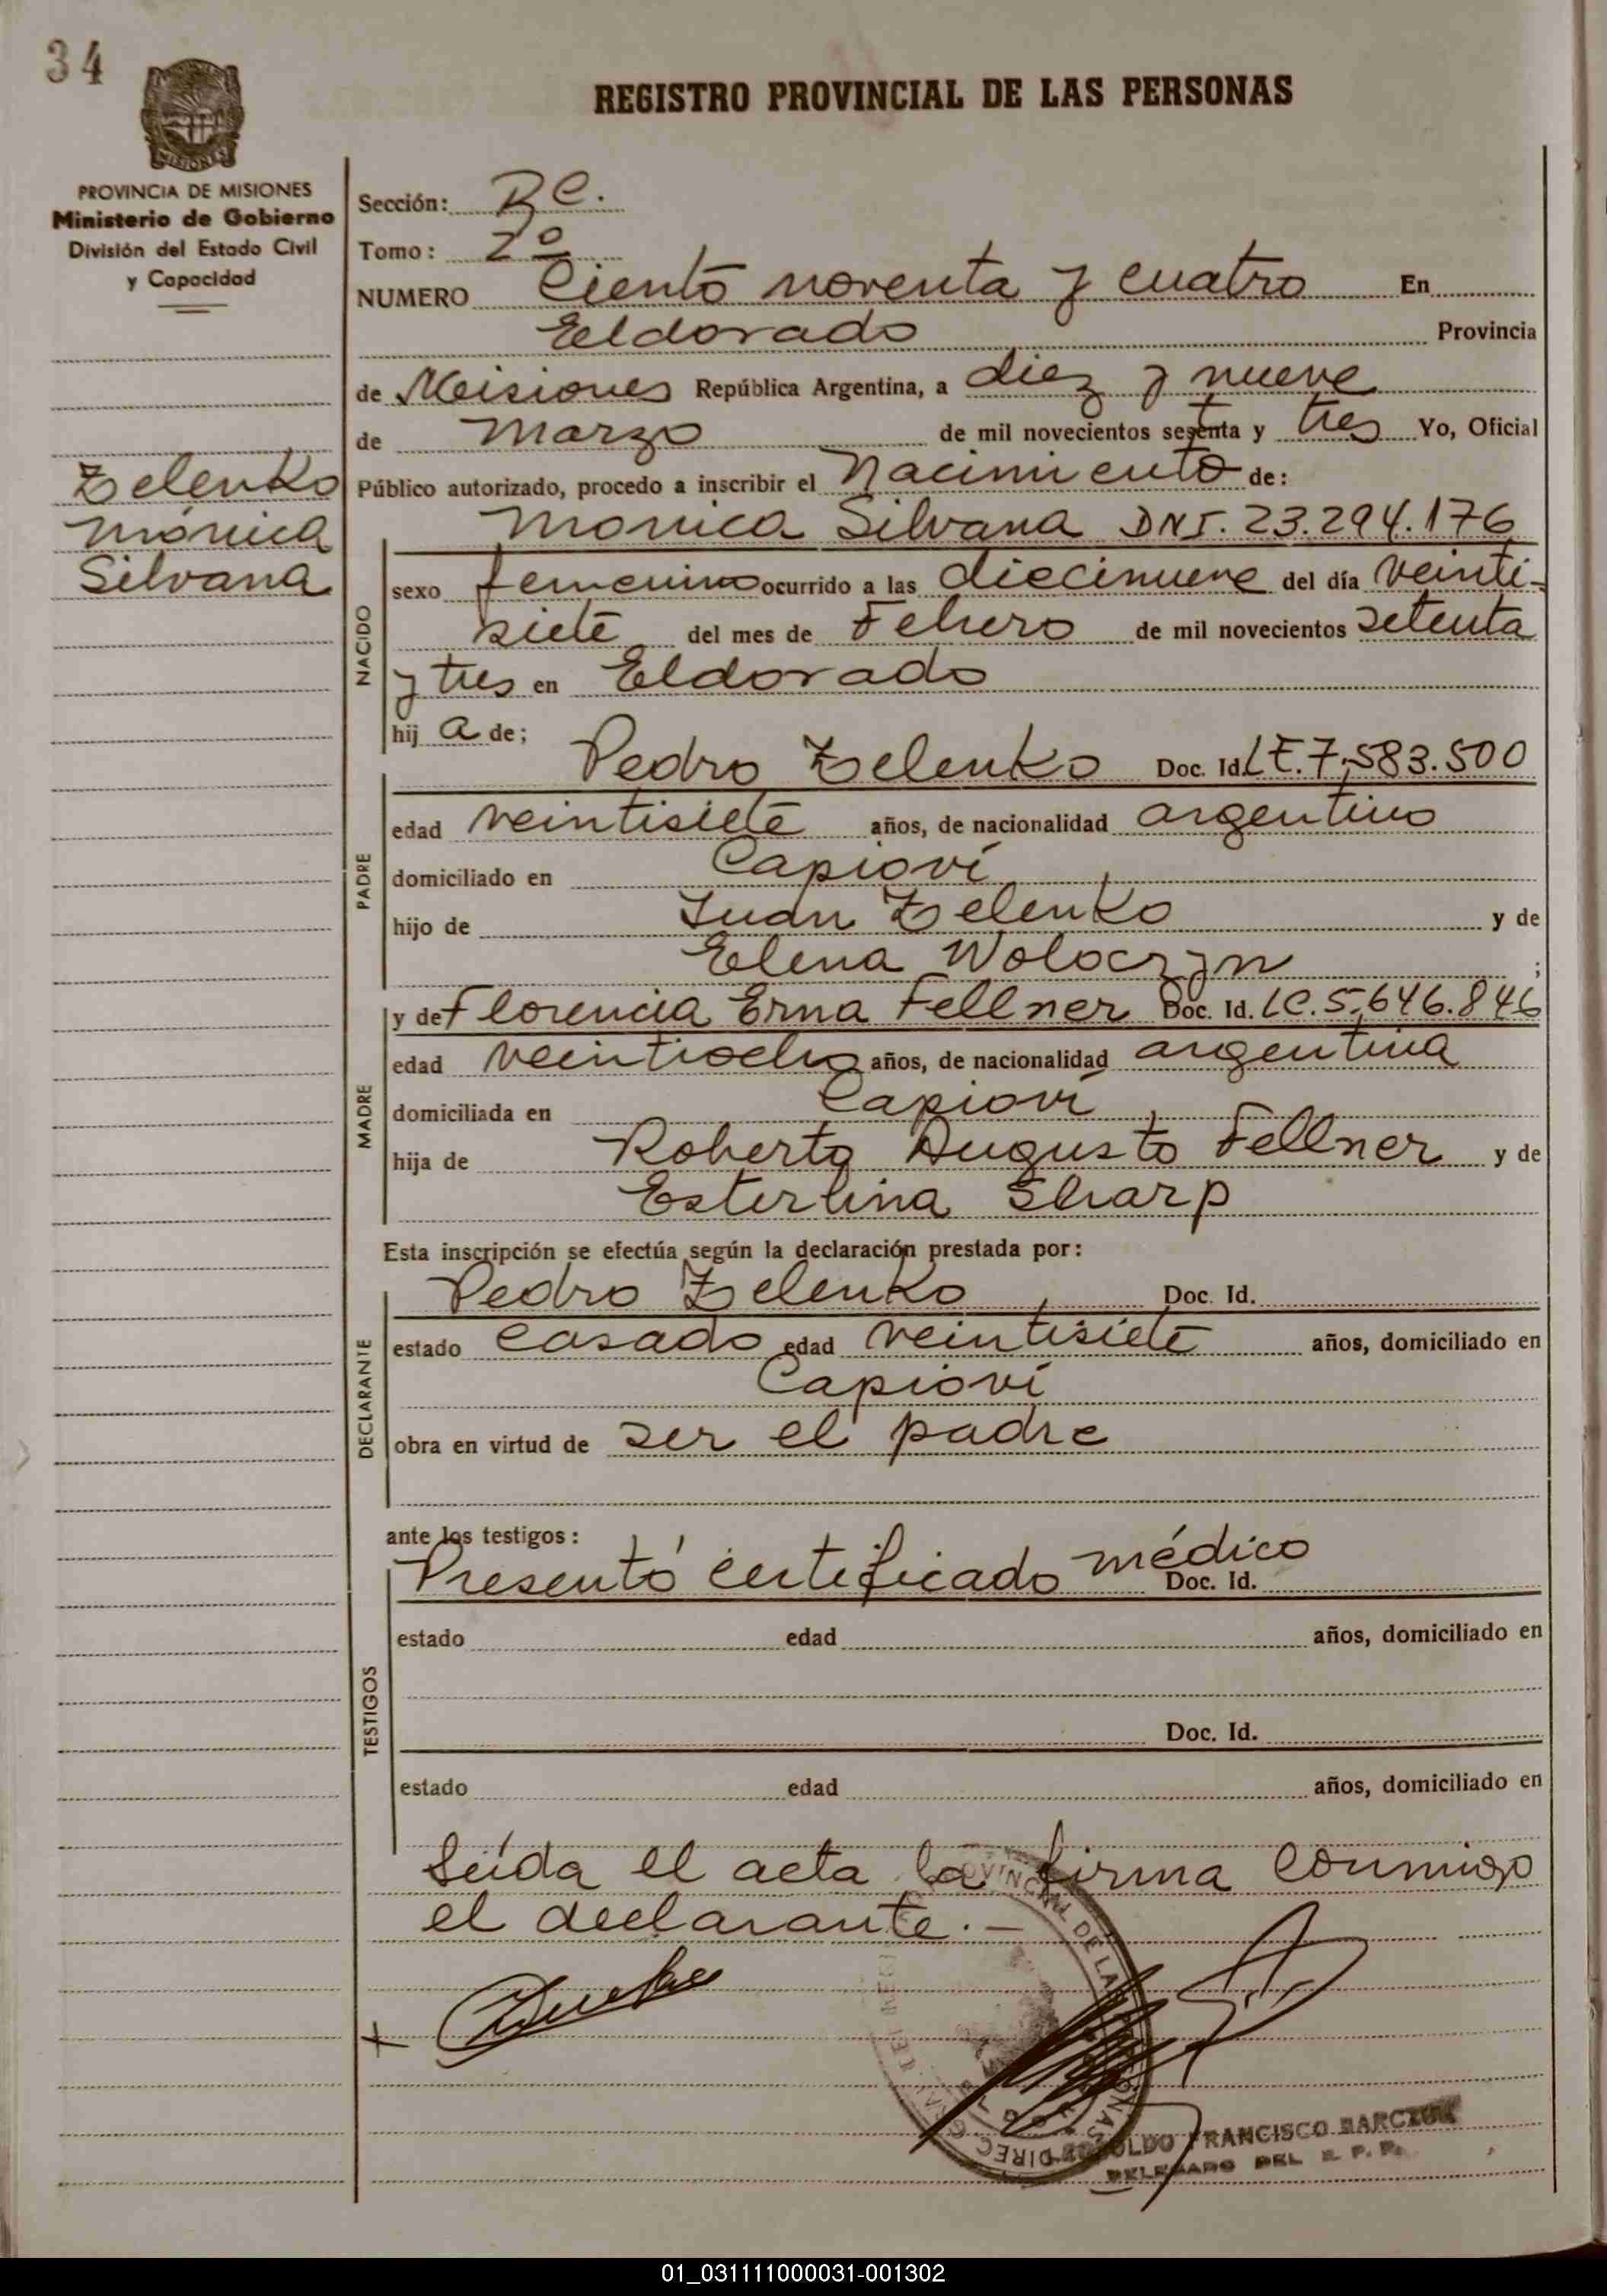 34
REGISTRO PROVINCIAL DE LAS PERSONAS
MISIONES
PROVINCIA DE MISIONES
Ministerio de Gobierno
División del Estado Civil
y Capacidad
Zelenko
Mónica
Silvana
Sección:
Tomo: 2º
NUMERO Ciento noventa y cuatro En
Eldorado Provincia
de Misiones República Argentina, a diez y nueve
de Marzo de mil novecientos sesenta y tres Yo, Oficial
Público autorizado, procedo a inscribir el Nacimiento de:
Monica Silvana DNI. 23.294.176
NACIDO
sexo femenino ocurrido a las diecinueve del día veinti-
siete del mes de Febrero de mil novecientos setenta
y tres en Eldorado
hij a de;
Pedro Zelenko Doc. Id. LE. 7.583.500
PADRE
edad veintisiete años, de nacionalidad argentino
domiciliado en Capioví
hijo de Juan Zelenko y de
Elena Woloczyn ;
y de Florencia Erna Fellner Doc. Id. LC. 5.646.846
MADRE
edad veintiocho años, de nacionalidad argentina
domiciliada en Capioví
hija de Roberto Augusto Fellner y de
Esterlina Sharp
Esta inscripción se efectúa según la declaración prestada por:
Pedro Zelenko Doc. Id.
DECLARANTE
estado casado edad veintisiete años, domiciliado en
Capioví
obra en virtud de ser el padre
ante los testigos:
Presentó certificado médico Doc. Id.
TESTIGOS
estado edad años, domiciliado en
Doc. Id.
estado edad años, domiciliado en
Leída el acta la firma conmigo
el declarante.-
FRANCISCO
DELEGADO DEL R. P. P.
01_031111000031-001302